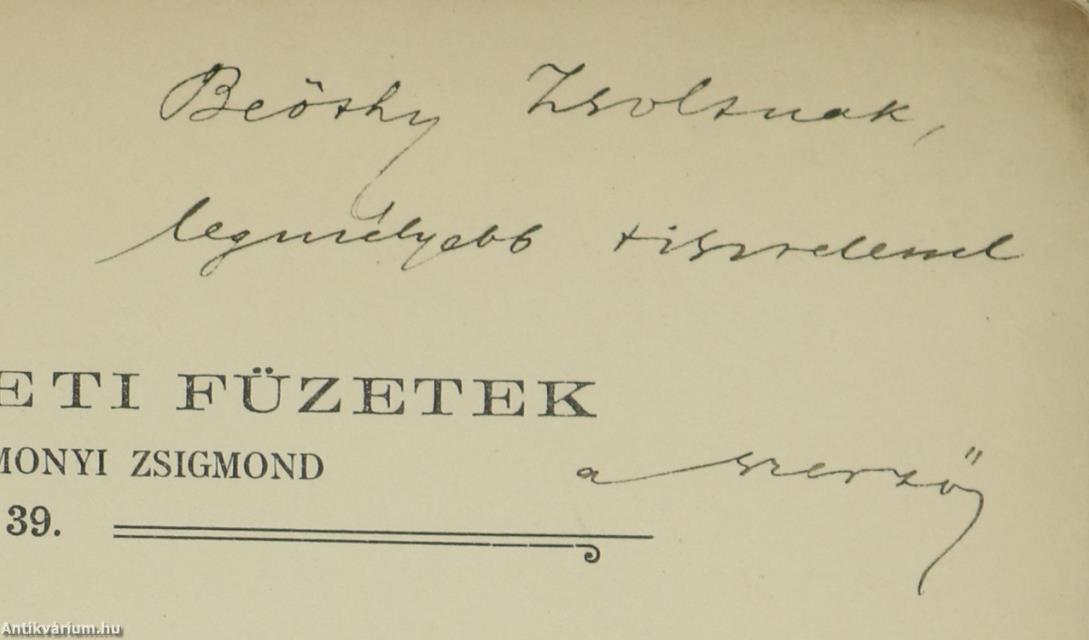 Beöthy Zsoltnak,
legmélyebb tisztelettel
ETI FÜZETEK
MONYI ZSIGMOND
a szerző
39.
Antikvárium.hu